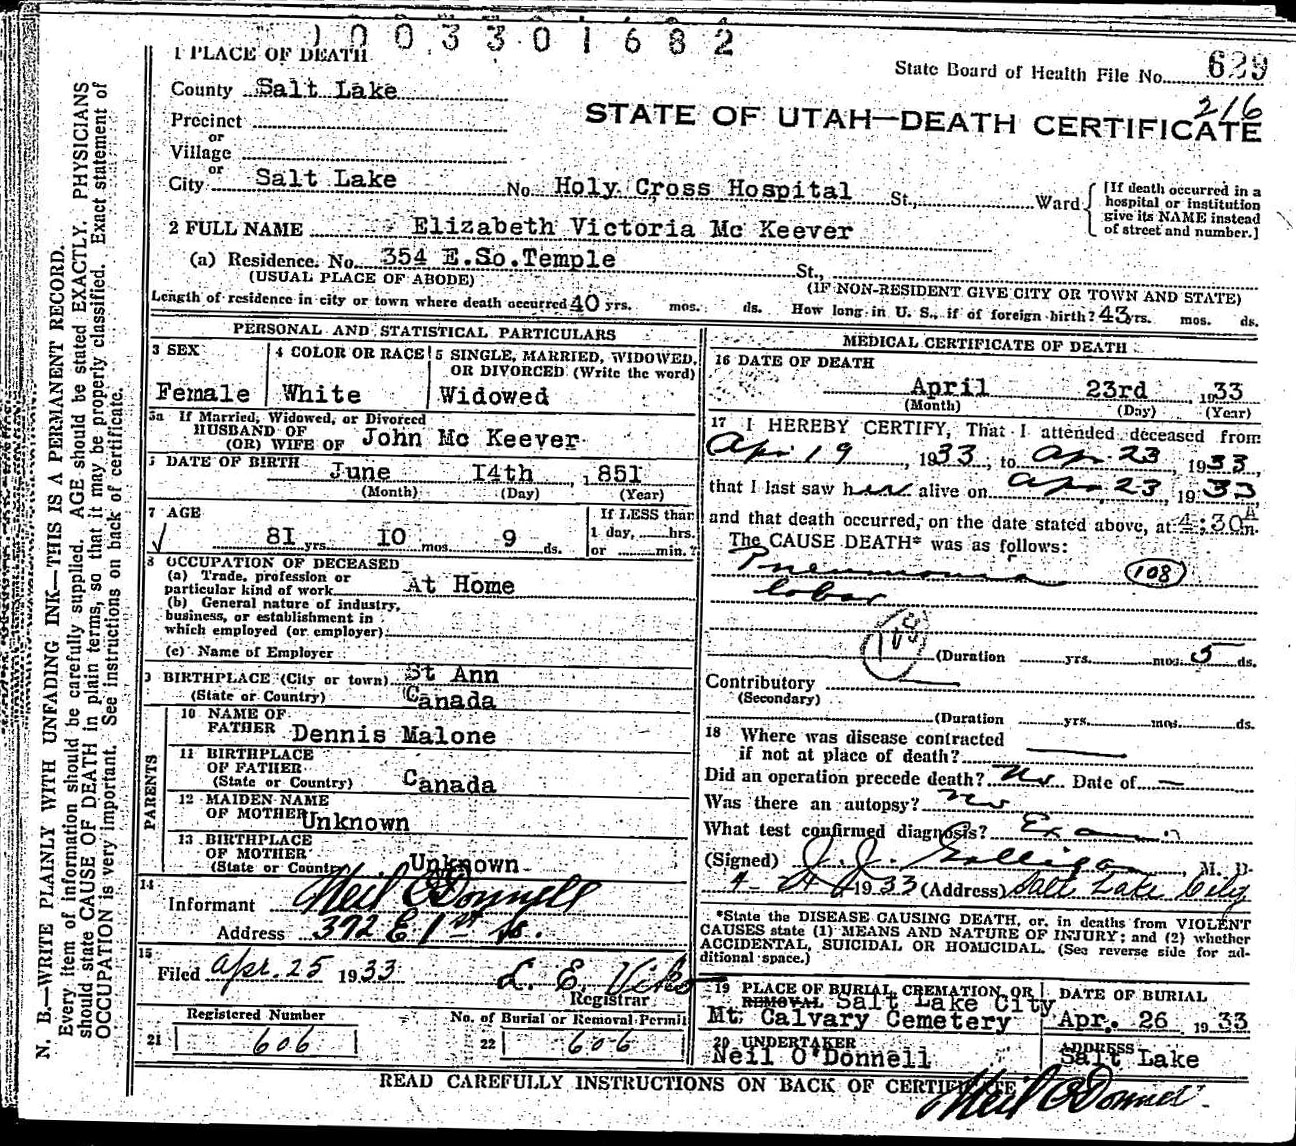 1003301682
1 PLACE OF DEATH
State Board of Health File No. 629
County Salt Lake
216
STATE OF UTAH—DEATH CERTIFICATE
Precinct
or
Village
or
City Salt Lake No. Holy Cross Hospital St., Ward
[If death occurred in a
hospital or institution
give its NAME instead
of street and number.]
2 FULL NAME Elizabeth Victoria Mc Keever
(a) Residence. No. 354 E.So.Temple St.,
(USUAL PLACE OF ABODE) (IF NON-RESIDENT GIVE CITY OR TOWN AND STATE)
Length of residence in city or town where death occurred 40 yrs. mos. ds. How long in U. S., if of foreign birth? 43 yrs. mos. ds.
PERSONAL AND STATISTICAL PARTICULARS
3 SEX 4 COLOR OR RACE 5 SINGLE, MARRIED, WIDOWED,
OR DIVORCED (Write the word)
Female White Widowed
5a If Married, Widowed, or Divorced
HUSBAND OF
(OR) WIFE OF John Mc Keever
DATE OF BIRTH June 14th, 1851
(Month) (Day) (Year)
7 AGE If LESS than
81 yrs 10 mos. 9 ds. 1 day, hrs.
or min.?
8 OCCUPATION OF DECEASED
(a) Trade, profession or
particular kind of work At Home
(b) General nature of industry,
business, or establishment in
which employed (or employer)
(c) Name of Employer
9 BIRTHPLACE (City or town) St Ann
(State or Country) Canada
PARENTS
10 NAME OF
FATHER Dennis Malone
11 BIRTHPLACE
OF FATHER
(State or Country) Canada
12 MAIDEN NAME
OF MOTHER Unknown
13 BIRTHPLACE
OF MOTHER
(State or Country Unknown
14
Informant Neil O'Donnell
Address 372 E 1st So.
15
Filed Apr. 25 1933 L. E. Viko
Registrar
Registered Number No. of Burial or Removal Permit
21 606 22 606
MEDICAL CERTIFICATE OF DEATH
16 DATE OF DEATH
April 23rd 1933
(Month) (Day) (Year)
17 I HEREBY CERTIFY, That I attended deceased from
Apr 19, 1933, to Apr. 23, 1933,
that I last saw her alive on Apr. 23, 1933
and that death occurred, on the date stated above, at 4:30 A m.
The CAUSE DEATH* was as follows:
Pneumonia 108
lobar
(Duration yrs. mos. 5 ds.
Contributory
(Secondary)
(Duration yrs. mos. ds.
18 Where was disease contracted
if not at place of death?
Did an operation precede death? No Date of —
Was there an autopsy? No
What test confirmed diagnosis? Exam
(Signed) J. J. Galligan, M. D.
4- 1933 (Address) Salt Lake City
*State the DISEASE CAUSING DEATH, or, in deaths from VIOLENT
CAUSES state (1) MEANS AND NATURE OF INJURY; and (2) whether
ACCIDENTAL, SUICIDAL OR HOMICIDAL. (See reverse side for ad-
ditional space.)
19 PLACE OF BURIAL, CREMATION, OR DATE OF BURIAL
REMOVAL Salt Lake City
Mt. Calvary Cemetery Apr. 26 1933
20 UNDERTAKER ADDRESS
Neil O'Donnell Salt Lake
READ CAREFULLY INSTRUCTIONS ON BACK OF CERTIFICATE
Neil O'Donnell
N. B.—WRITE PLAINLY WITH UNFADING INK—THIS IS A PERMANENT RECORD.
Every item of information should be carefully supplied. AGE should be stated EXACTLY. PHYSICIANS
should state CAUSE OF DEATH in plain terms, so that it may be properly classified. Exact statement of
OCCUPATION is very important. See instructions on back of certificate.